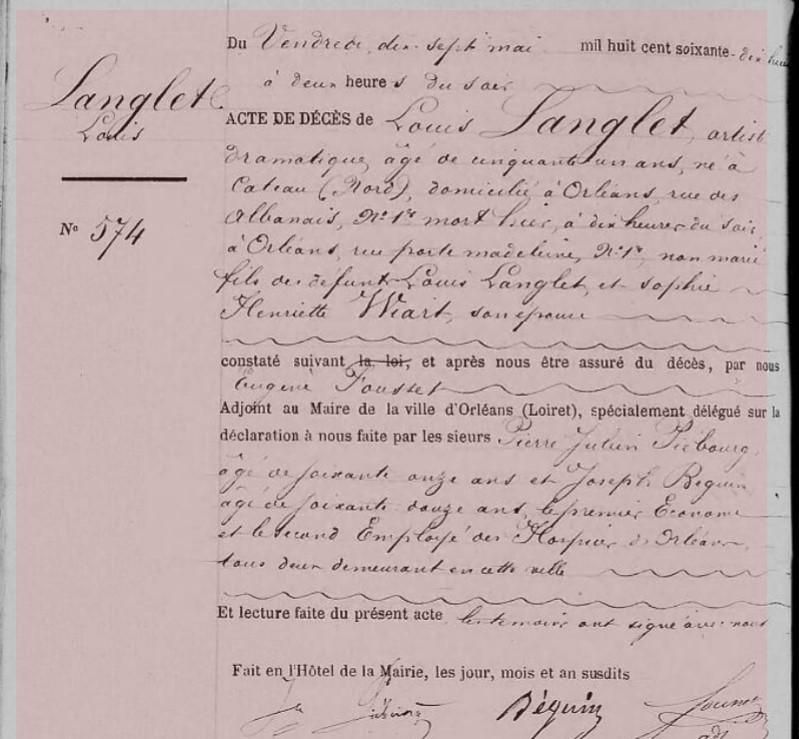 Langlet
Louis
N° 574
Du Vendredi dix sept mai mil huit cent soixante-dix huit
à deux heures du soir
ACTE DE DÉCÈS de Louis Langlet, artiste
dramatique, âgé de cinquante un ans, né à
Cateau (Nord), domicilié à Orléans, rue des
Albanais, N° 1er mort hier, à dix heures du soir,
à Orléans, rue porte madeleine, N° 1er, non marié
fils de défunts Louis Langlet, et sophie
Henriette Wiart, son épouse
constaté suivant la loi, et après nous être assuré du décès, par nous
Eugène Fousset
Adjoint au Maire de la ville d'Orléans (Loiret), spécialement délégué sur la
déclaration à nous faite par les sieurs Pierre Julien Piébourg,
âgé de soixante onze ans et Joseph Béguin
âgé de soixante douze ans, le premier Econome
et le second Employé des Hospices d'Orléans,
tous deux demeurant en cette ville
Et lecture faite du présent acte les témoins ont signé avec nous
Fait en l'Hôtel de la Mairie, les jour, mois et an susdits
Béguin